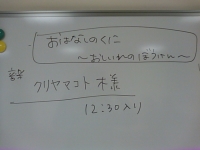 おはなしのくに
～おしいれのぼうけん～
クリヤマコト 様
12:30入り